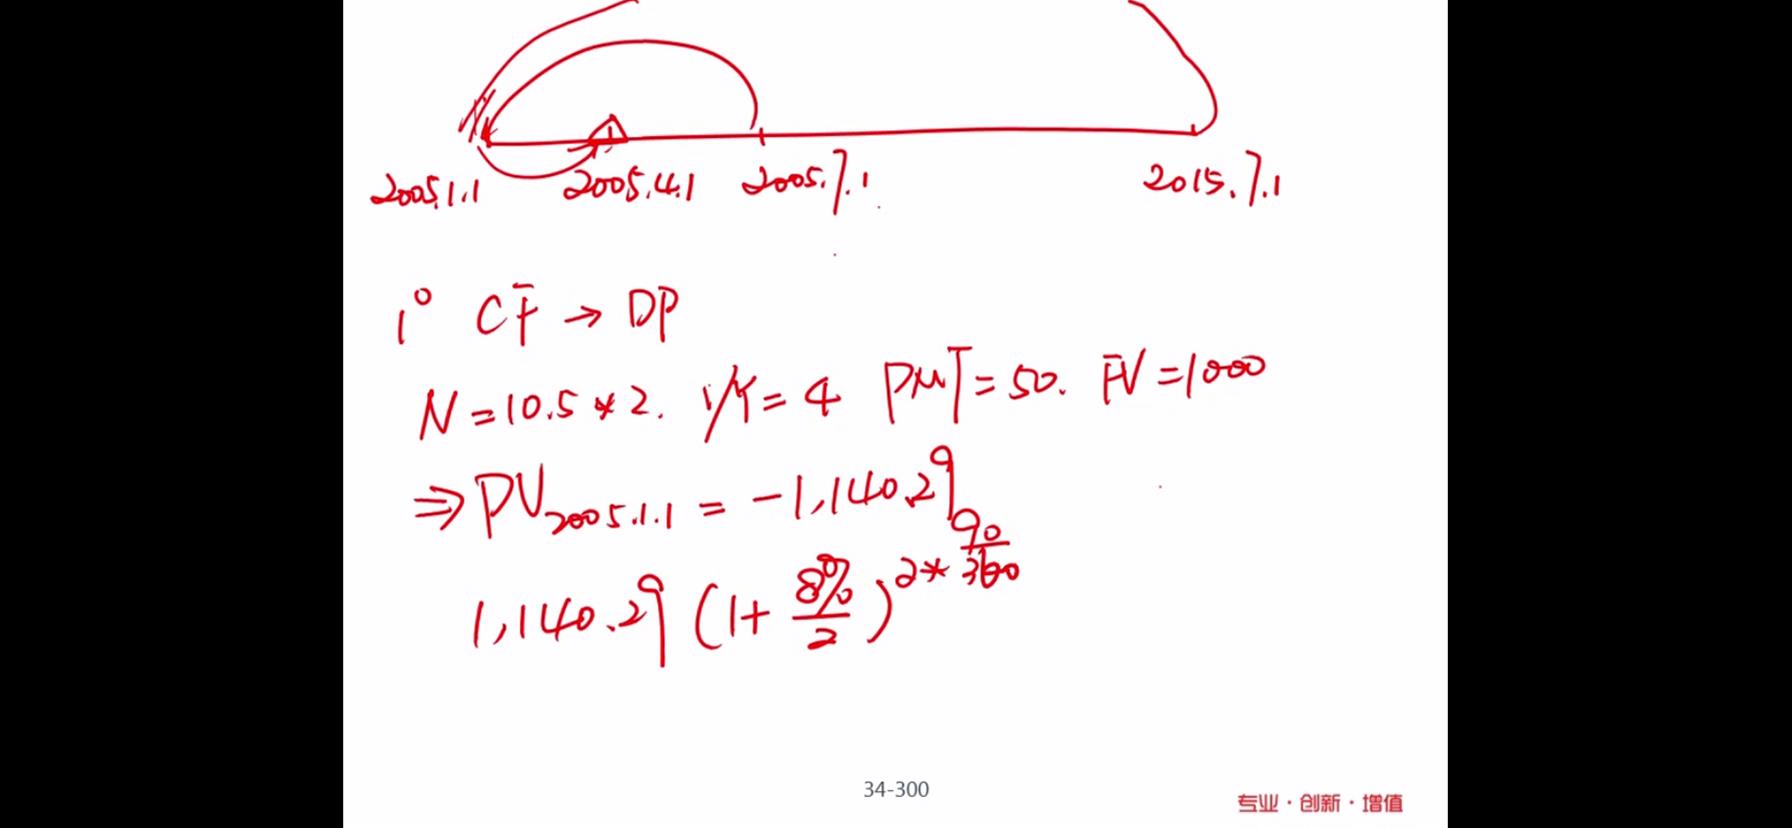 2005.1.1 2005.4.1 2005.7.1 2015.7.1
1° CF → DP
N = 10.5 * 2. I/Y = 4 PMT = 50. FV = 1000
⇒ PV2005.1.1 = -1,140.29
1,140.29 (1 + 8%/2)^2 * 90/360
34-300
专业·创新·增值